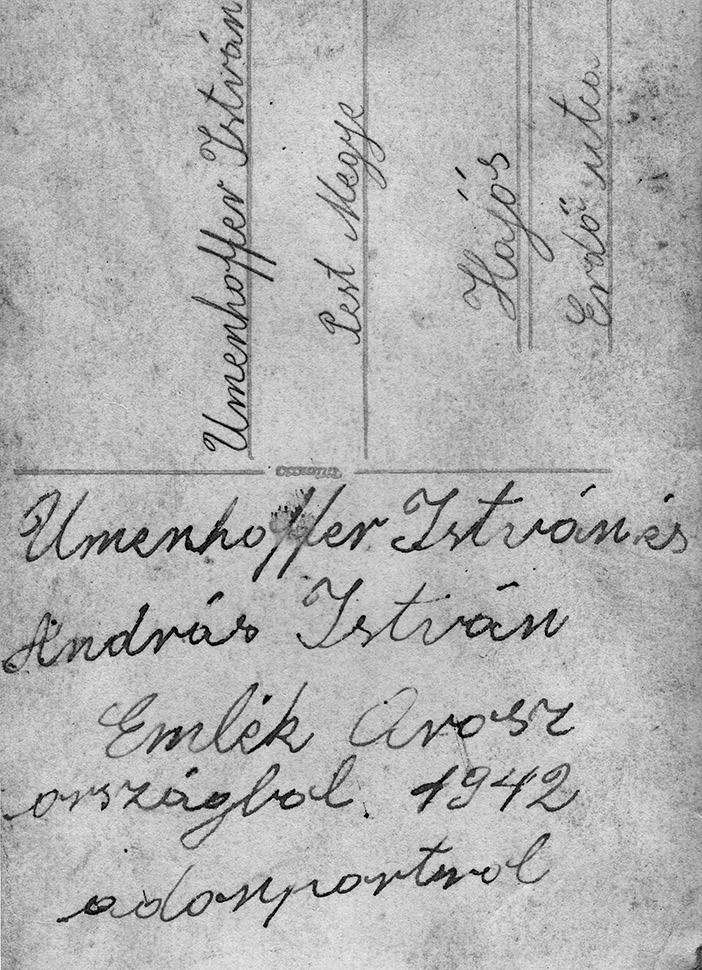 Umenhoffer István
Pest Megye
Hajós
Erdő utca
Umenhoffer István és
András István
Emlék Orosz
országbol. 1942
adonpartrol